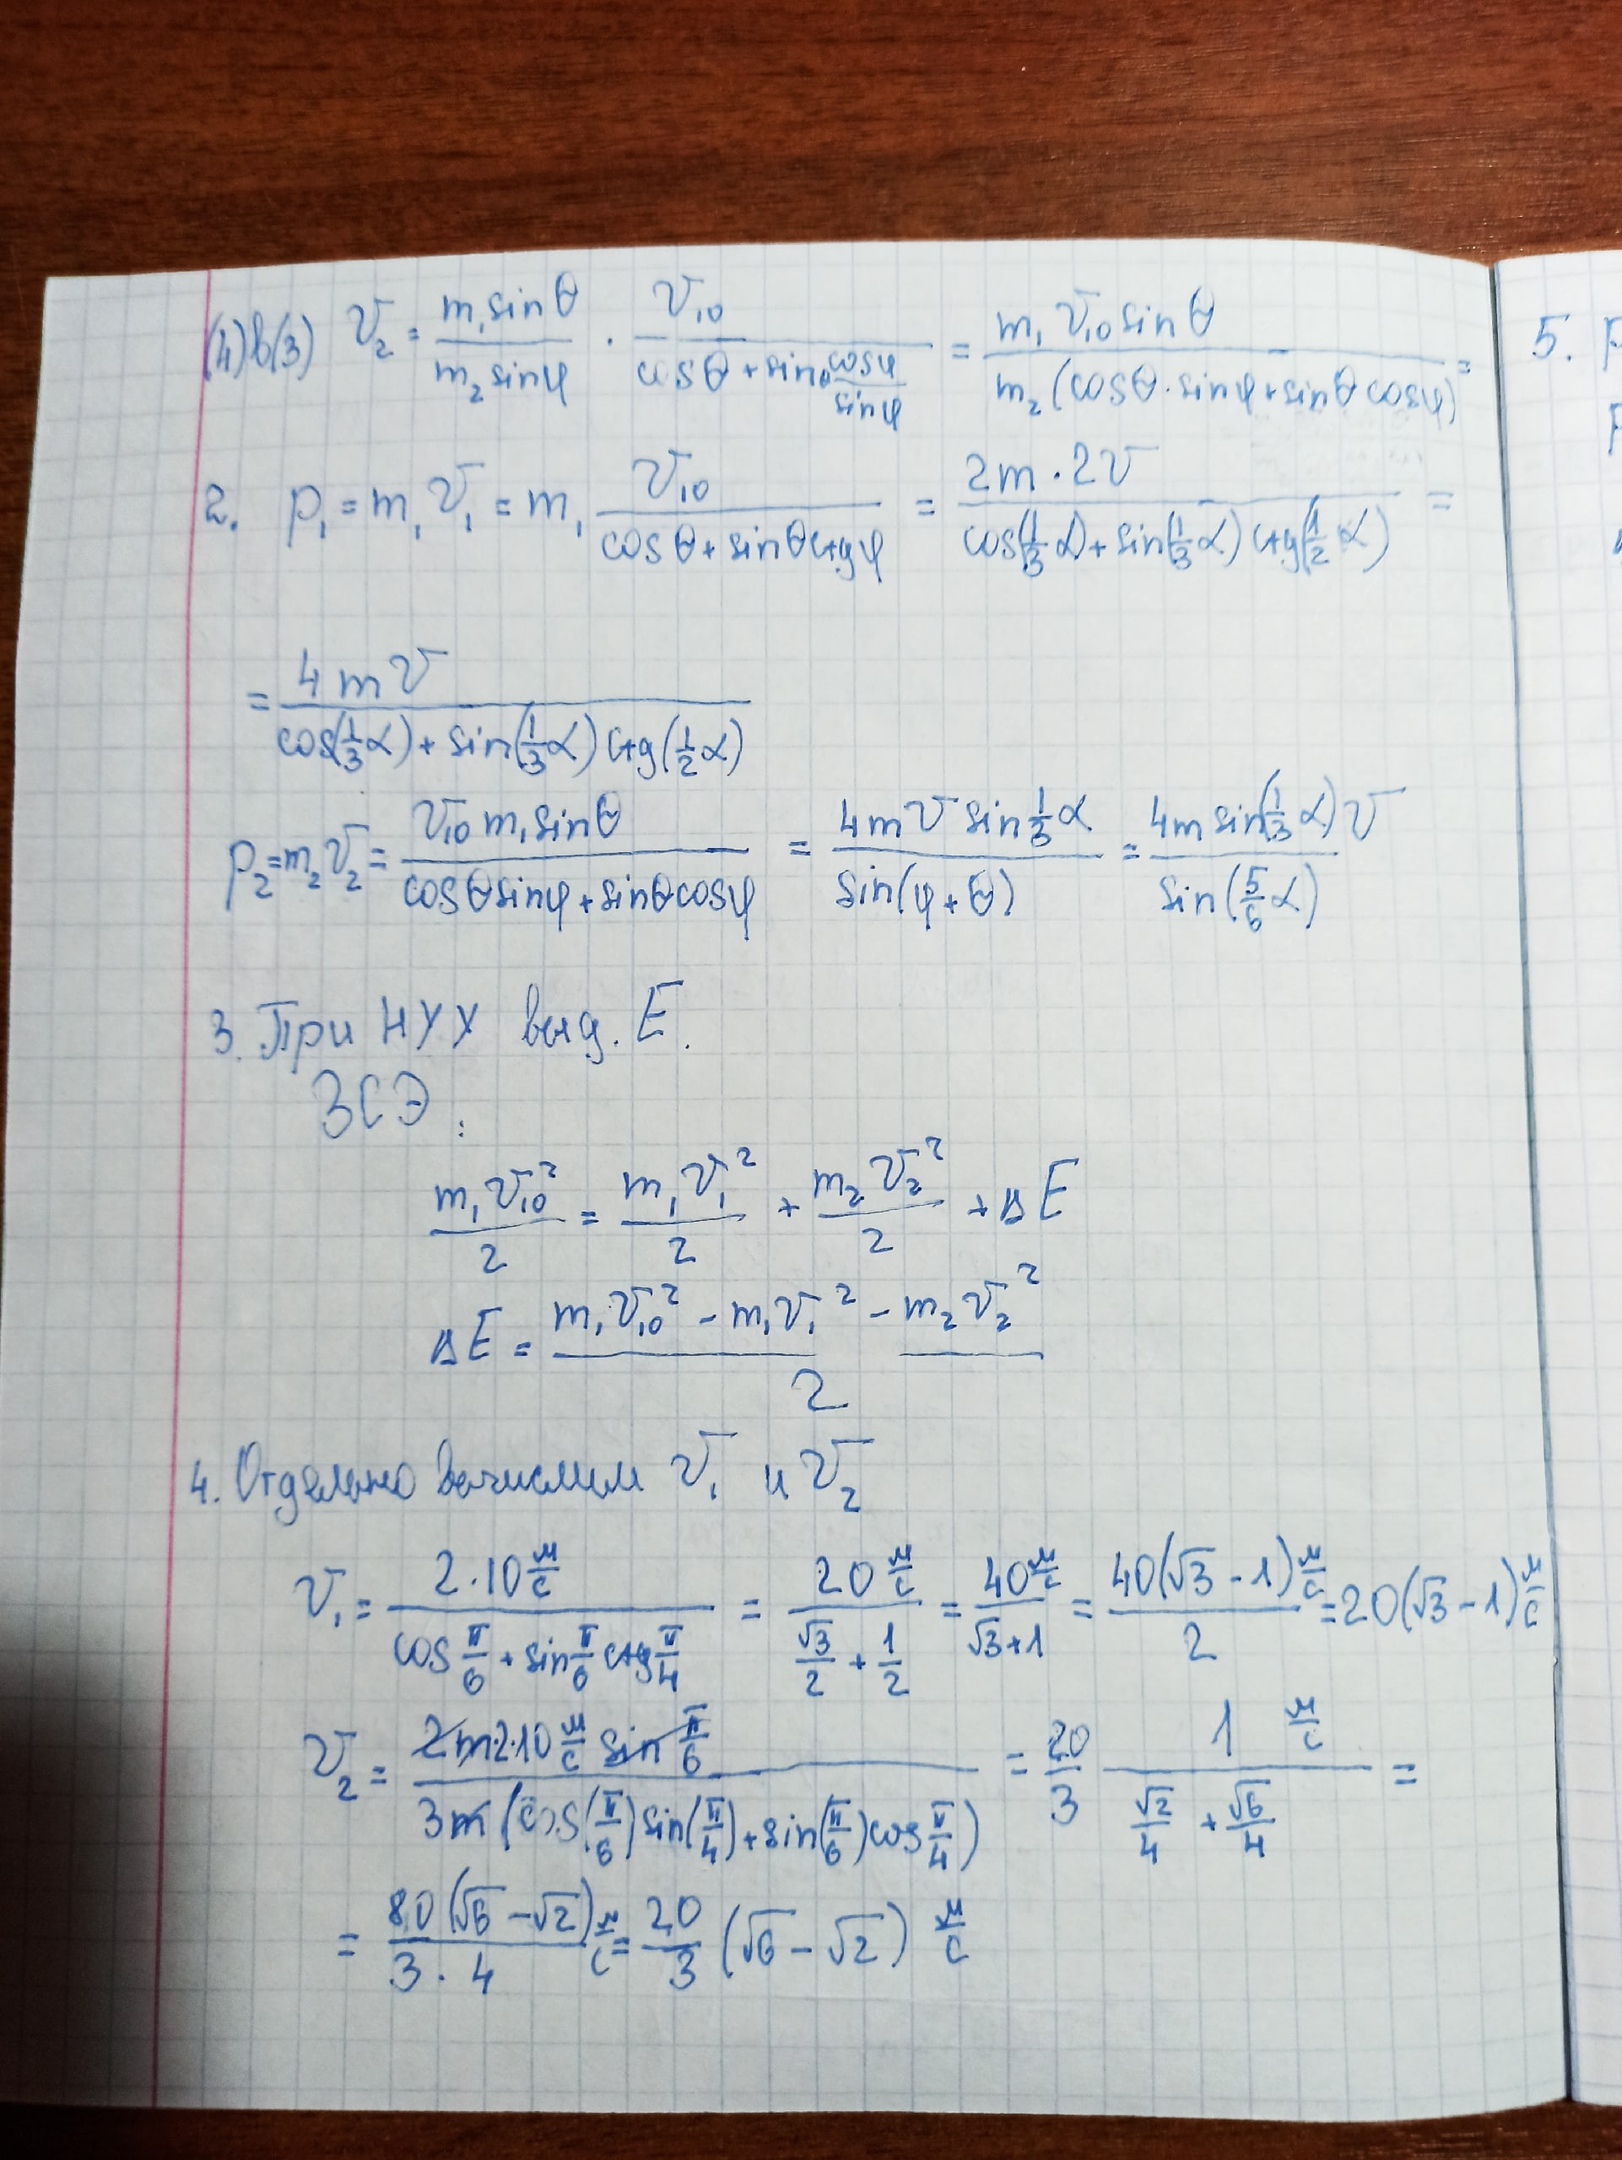 (4)в(3) v₂ = m₁sinθ/(m₂sinφ) · v₁₀/(cosθ + sinθ cosφ/sinφ) = m₁v₁₀sinθ/(m₂(cosθ·sinφ+sinθcosφ)) =
2. p₁ = m₁v₁ = m₁ v₁₀/(cosθ+sinθctgφ) = 2m·2v/(cos(1/3 α)+sin(1/3 α)ctg(1/2 α)) =
= 4mv/(cos(1/3 α)+sin(1/3 α)ctg(1/2 α))
p₂=m₂v₂= v₁₀m₁sinθ/(cosθsinφ+sinθcosφ) = 4mv sin 1/3 α/sin(φ+θ) = 4m sin(1/3 α)v/sin(5/6 α)
3. При НУУ выд. E.
ЗСЭ:
m₁v₁₀²/2 = m₁v₁²/2 + m₂v₂²/2 + ΔE
ΔE = (m₁v₁₀² - m₁v₁² - m₂v₂²)/2
4. Отдельно вычислим v₁ и v₂
v₁ = 2·10 м/с/(cos π/6 + sin π/6 ctg π/4) = 20 м/с/(√3/2 + 1/2) = 40 м/с/(√3+1) = 40(√3-1) м/с/2 = 20(√3-1) м/с
v₂ = 2m·2·10 м/с sin π/6/(3m(cos(π/6)sin(π/4)+sin(π/6)cos π/4)) = 20/3 1/(√2/4 + √6/4) м/с =
= 80(√6-√2)/(3·4) м/с = 20/3 (√6-√2) м/с
5.